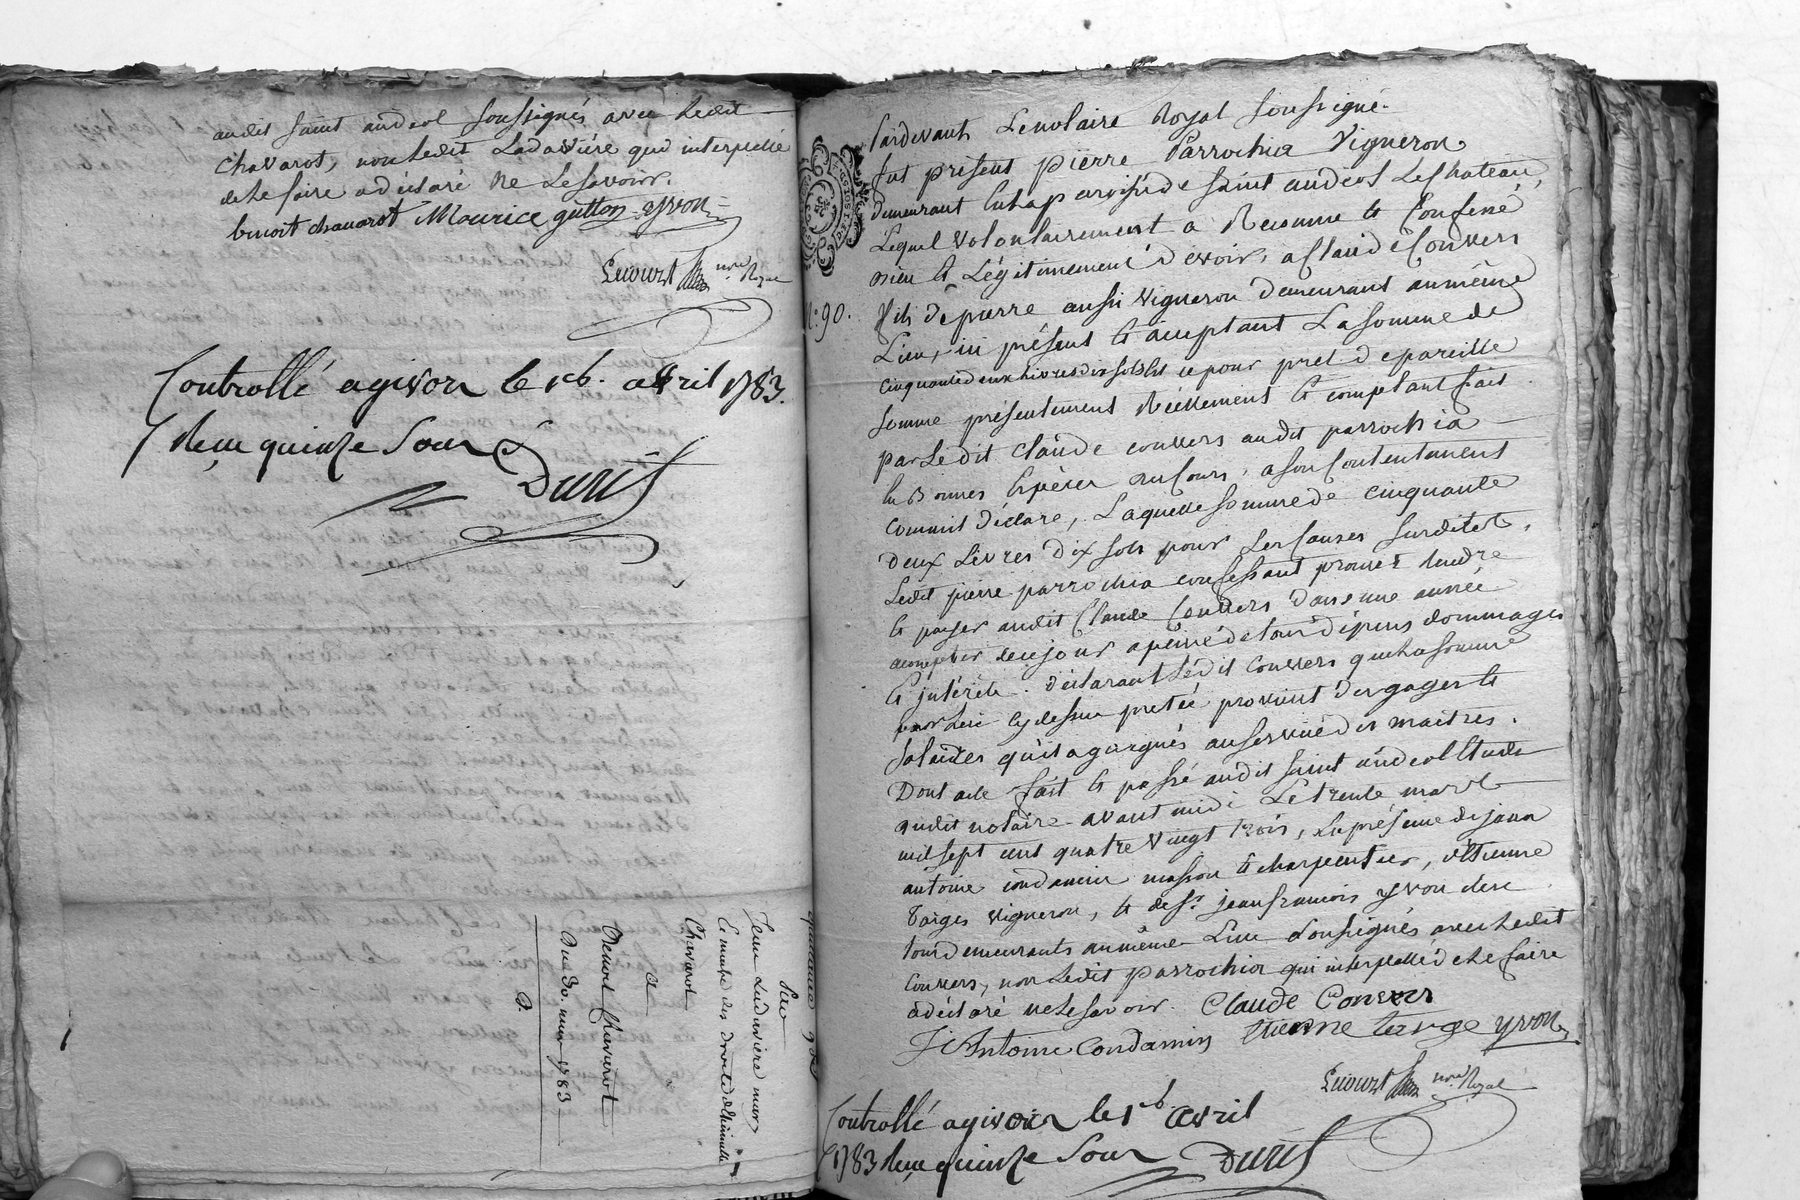 audit saint andeol soussignés avec ledit
Chavarot, non ledit Ladavière qui interpellé
de le faire a déclaré ne le savoir.
benoit chavarot Maurice guitton yvon
Lecourt nre Royal
Controllé a givors le 1er. avril 1783.
Recu quinze sous
Duris
quittance
Par
Jean Ladavière mary
Et maitre des droits d'
Chavarot
à
Benoit Chavarot
Du 30. mars 1783
Pardevant Le notaire Royal soussigné.
fut présent pierre Parrochia Vigneron
demeurant en la paroisse de saint andeol Le chateau,
Lequel volontairement a Reconnu et Confessé
bien et Légitimement devoir, a Claude Convers
N.º 90.
fils de pierre aussi vigneron demeurant au même
Lieu, ici présent et acceptant La somme de
cinquante deux Livres dix sols et ce pour pret de pareille
somme présentement Réellement et comptant fait
par Ledit Claude convers audit parrochia
en Bonnes Espèces au Cours, a son Contentement
comme il déclare, Laquelle somme de cinquante
deux Livres dix sols pour Les Causes susdites,
Ledit pierre parrochia confessant promet Rendre
et payer audit Claude Convers dans une année
a compter de ce jour a peine de tous dépens dommages
et intérêts. déclarant Ledit convers que la somme
par Lui cy dessus pretée provient des gages et
salaires qu'il a gagnés au service des maitres.
Dont acte fait et passé audit saint andeol Etude
dudit notaire avant midi Le trente mars
mil sept cent quatre vingt trois, En présence de jean
antoine condamin masson et charpentier, etienne
targes vigneron, et de sr. jean francois yvon clerc
tous demeurants au même Lieu soussignés avec Ledit
convers, non Ledit parrochia qui interpellé de le faire
a déclaré ne le savoir. Claude Convers
J Antoine Condamin etienne targe yvon
Lecourt nre Royal
Controllé a givors le 1er avril
1783 Recu quinze sous Duris